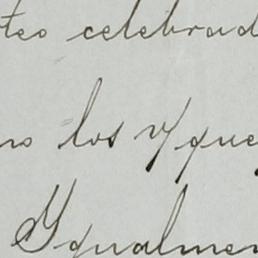 teo celebrad
no los y que
Ygualmen